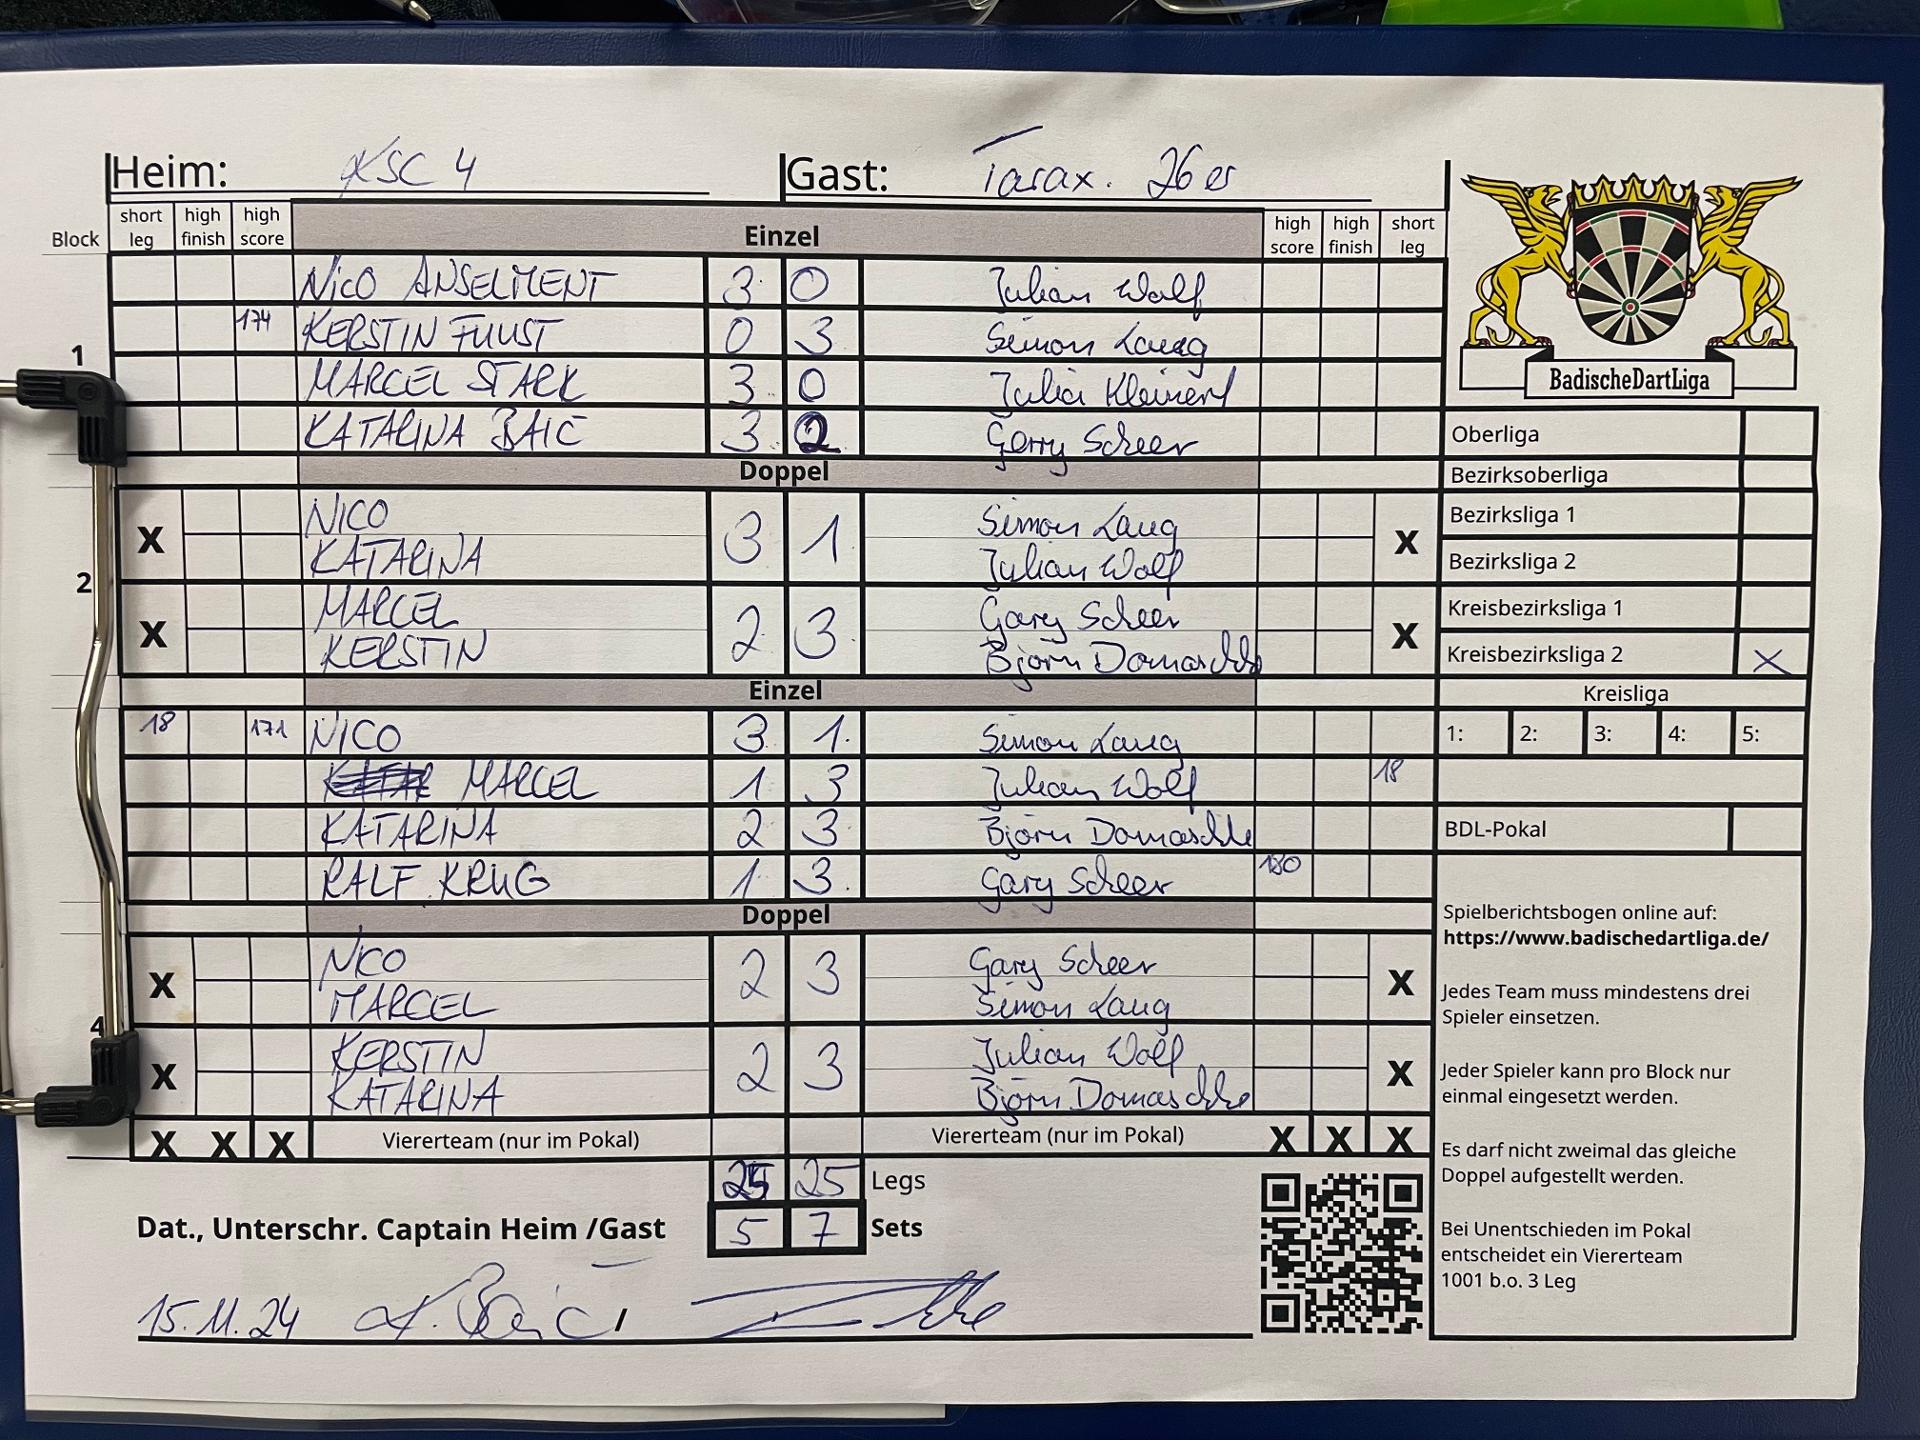 Heim: KSC 4 Gast: Tarax. 26er
Block short leg high finish high score Einzel high score high finish short leg
NICO ANSELMENT 3 0 Julian Wolf
174 KERSTIN FUUST 0 3 Simon Laug
1
MARCEL STARK 3 0 Julia Kleinert
KATARINA BAIC 3 2 Gerry Scheer
Doppel
NICO Simon Laug
X 3 1 X
KATARINA Julian Wolf
2
MARCEL Gary Scheer
X 2 3 X
KERSTIN Björn Domaschke
Einzel
18 171 NICO 3 1 Simon Laug
MARCEL 1 3 Julian Wolf 18
KATARINA 2 3 Björn Domaschke
RALF KRUG 1 3 Gary Scheer 180
Doppel
NICO Gary Scheer
X 2 3 X
MARCEL Simon Laug
4
KERSTIN Julian Wolf
X 2 3 X
KATARINA Björn Domaschke
X X X Viererteam (nur im Pokal) Viererteam (nur im Pokal) X X X
25 25 Legs
Dat., Unterschr. Captain Heim /Gast 5 7 Sets
15.11.24 K. Baić
BadischeDartLiga
Oberliga
Bezirksoberliga
Bezirksliga 1
Bezirksliga 2
Kreisbezirksliga 1
Kreisbezirksliga 2 X
Kreisliga
1: 2: 3: 4: 5:
BDL-Pokal
Spielberichtsbogen online auf:
https://www.badischedartliga.de/
Jedes Team muss mindestens drei
Spieler einsetzen.
Jeder Spieler kann pro Block nur
einmal eingesetzt werden.
Es darf nicht zweimal das gleiche
Doppel aufgestellt werden.
Bei Unentschieden im Pokal
entscheidet ein Viererteam
1001 b.o. 3 Leg